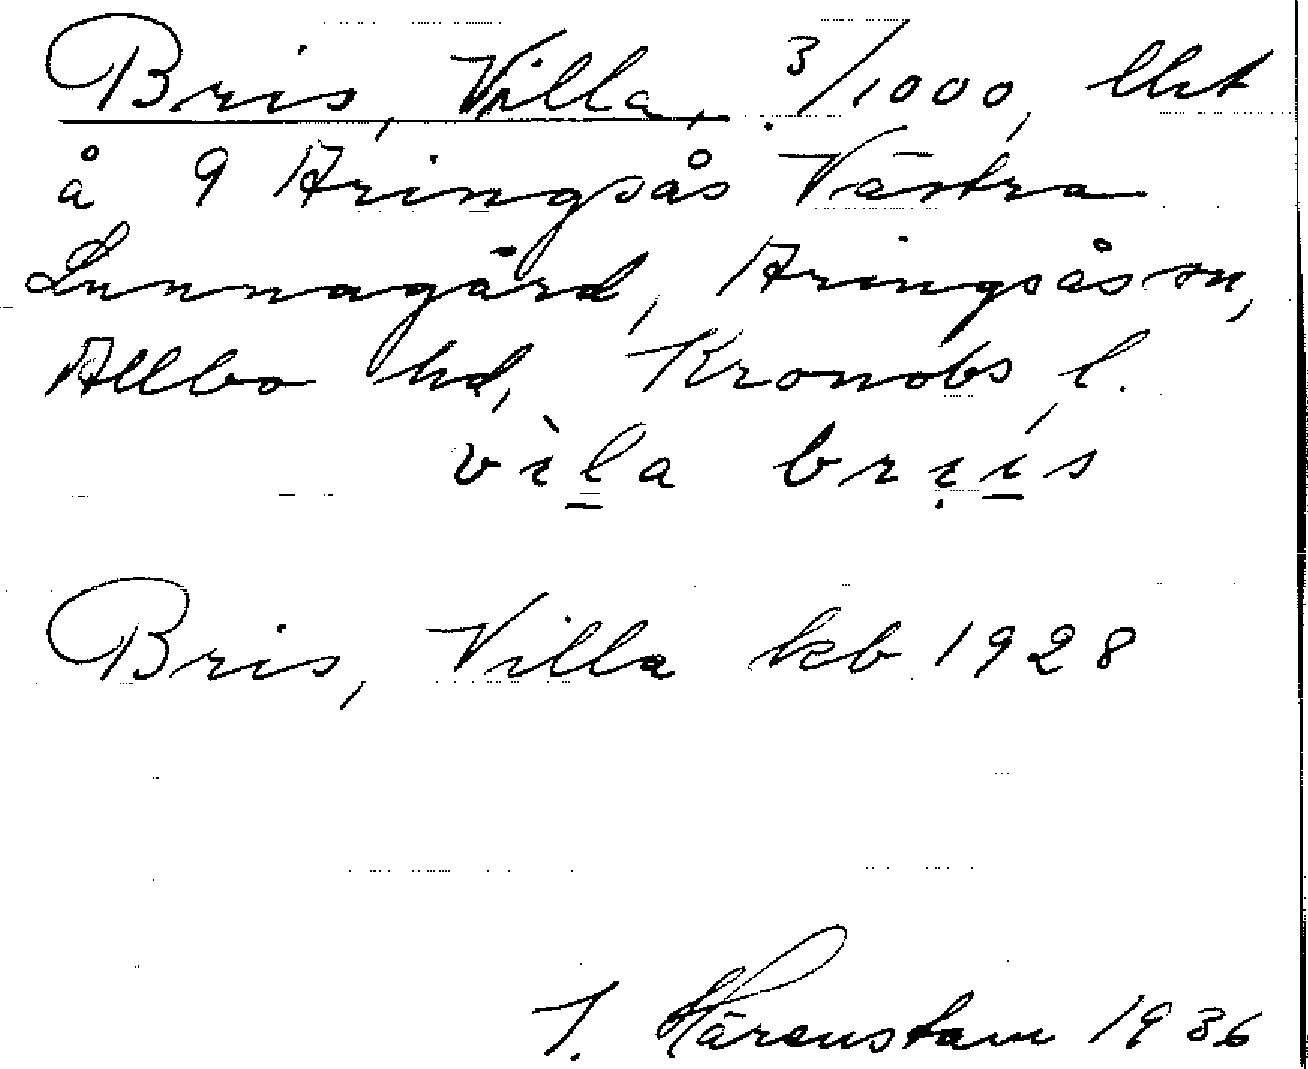 Bris, Villa, 3/1000, lht
å 9 Aringsås Västra
Lunnagård, Aringsås sn,
Allbo hd, Kronobs l.
vìla brìís
Bris, Villa kb 1928
I. Härenstam 1936